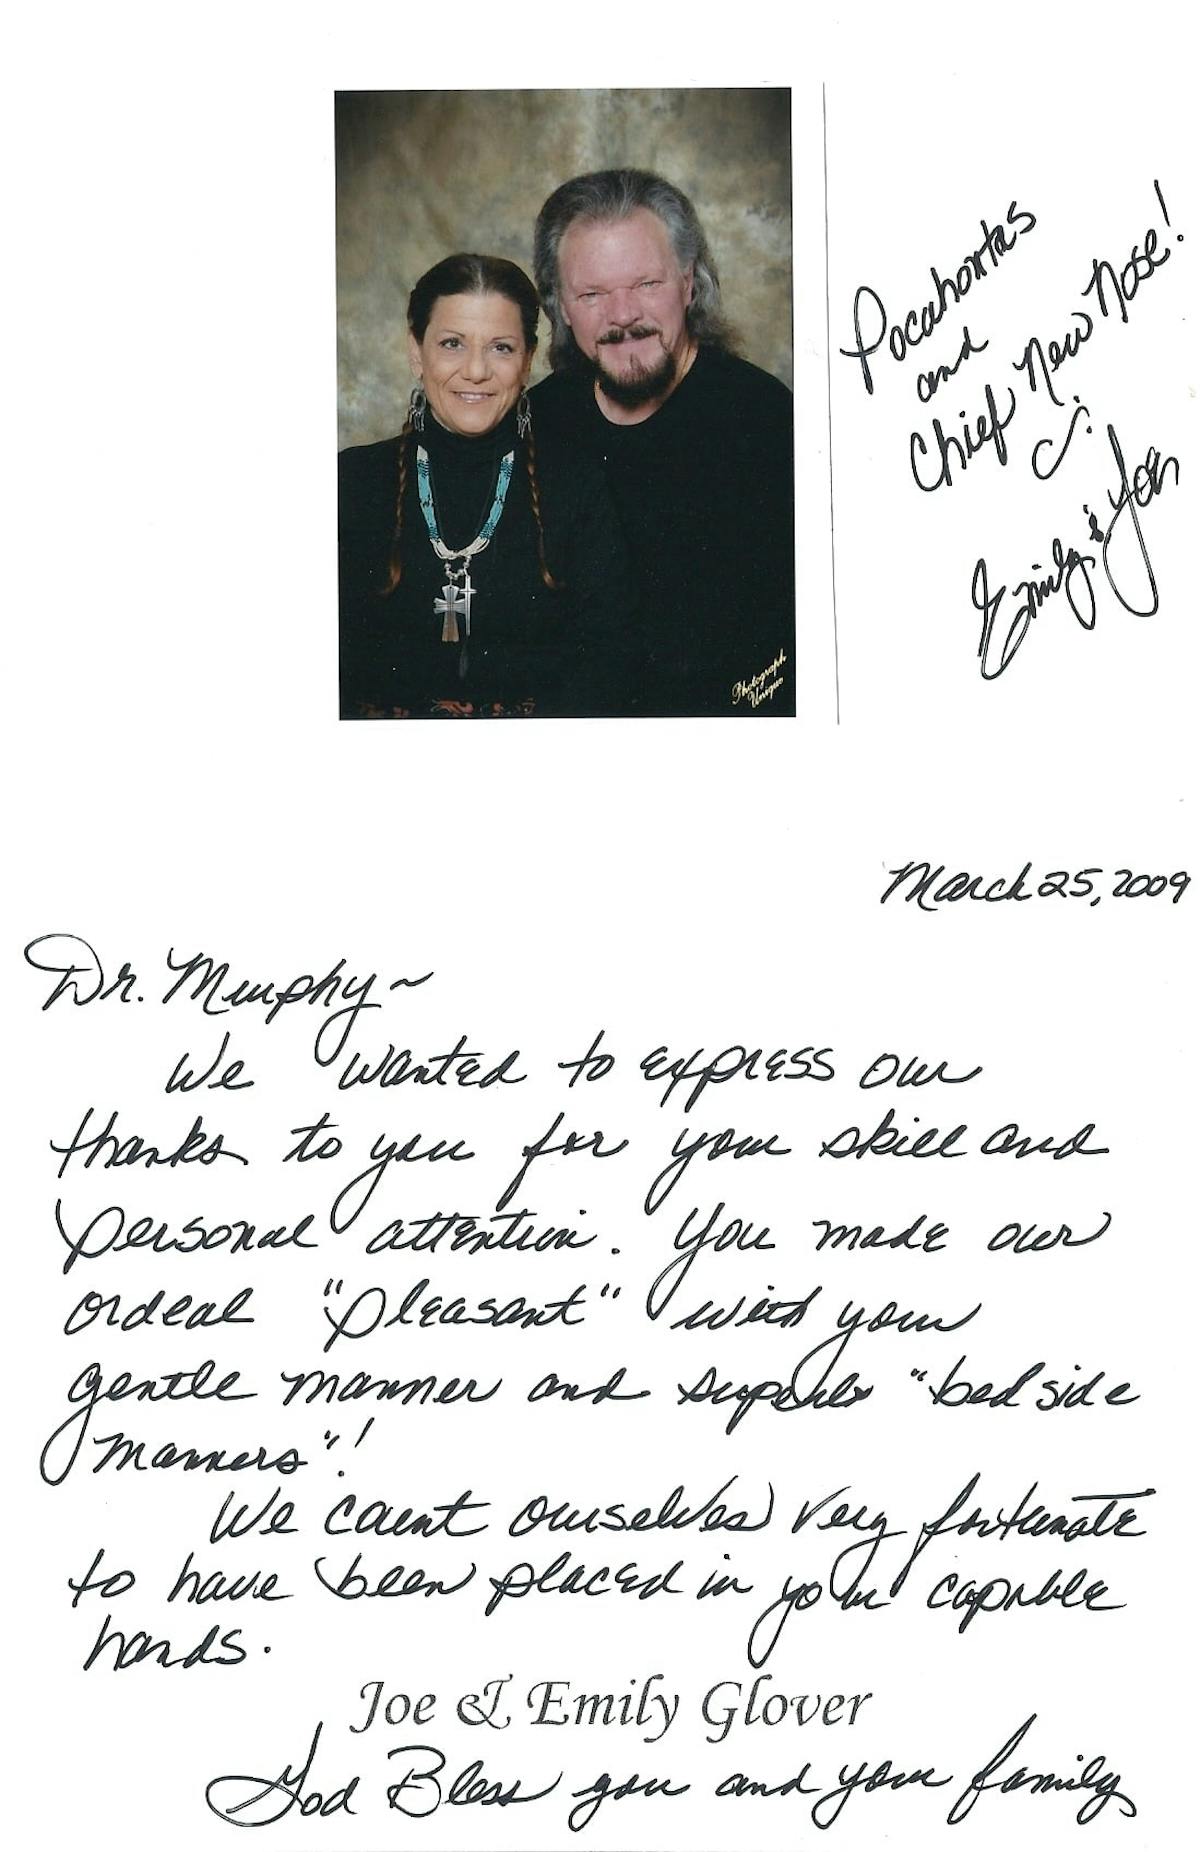 Pocahontas
and
Chief New Nose!
Emily & Joe
Photograph
Unique
March 25, 2009
Dr. Murphy ~
We wanted to express our
thanks to you for your skill and
personal attention. You made our
ordeal "pleasant" with your
gentle manner and superb "bedside
manners"!
We count ourselves very fortunate
to have been placed in your capable
hands.
Joe & Emily Glover
God Bless you and your family